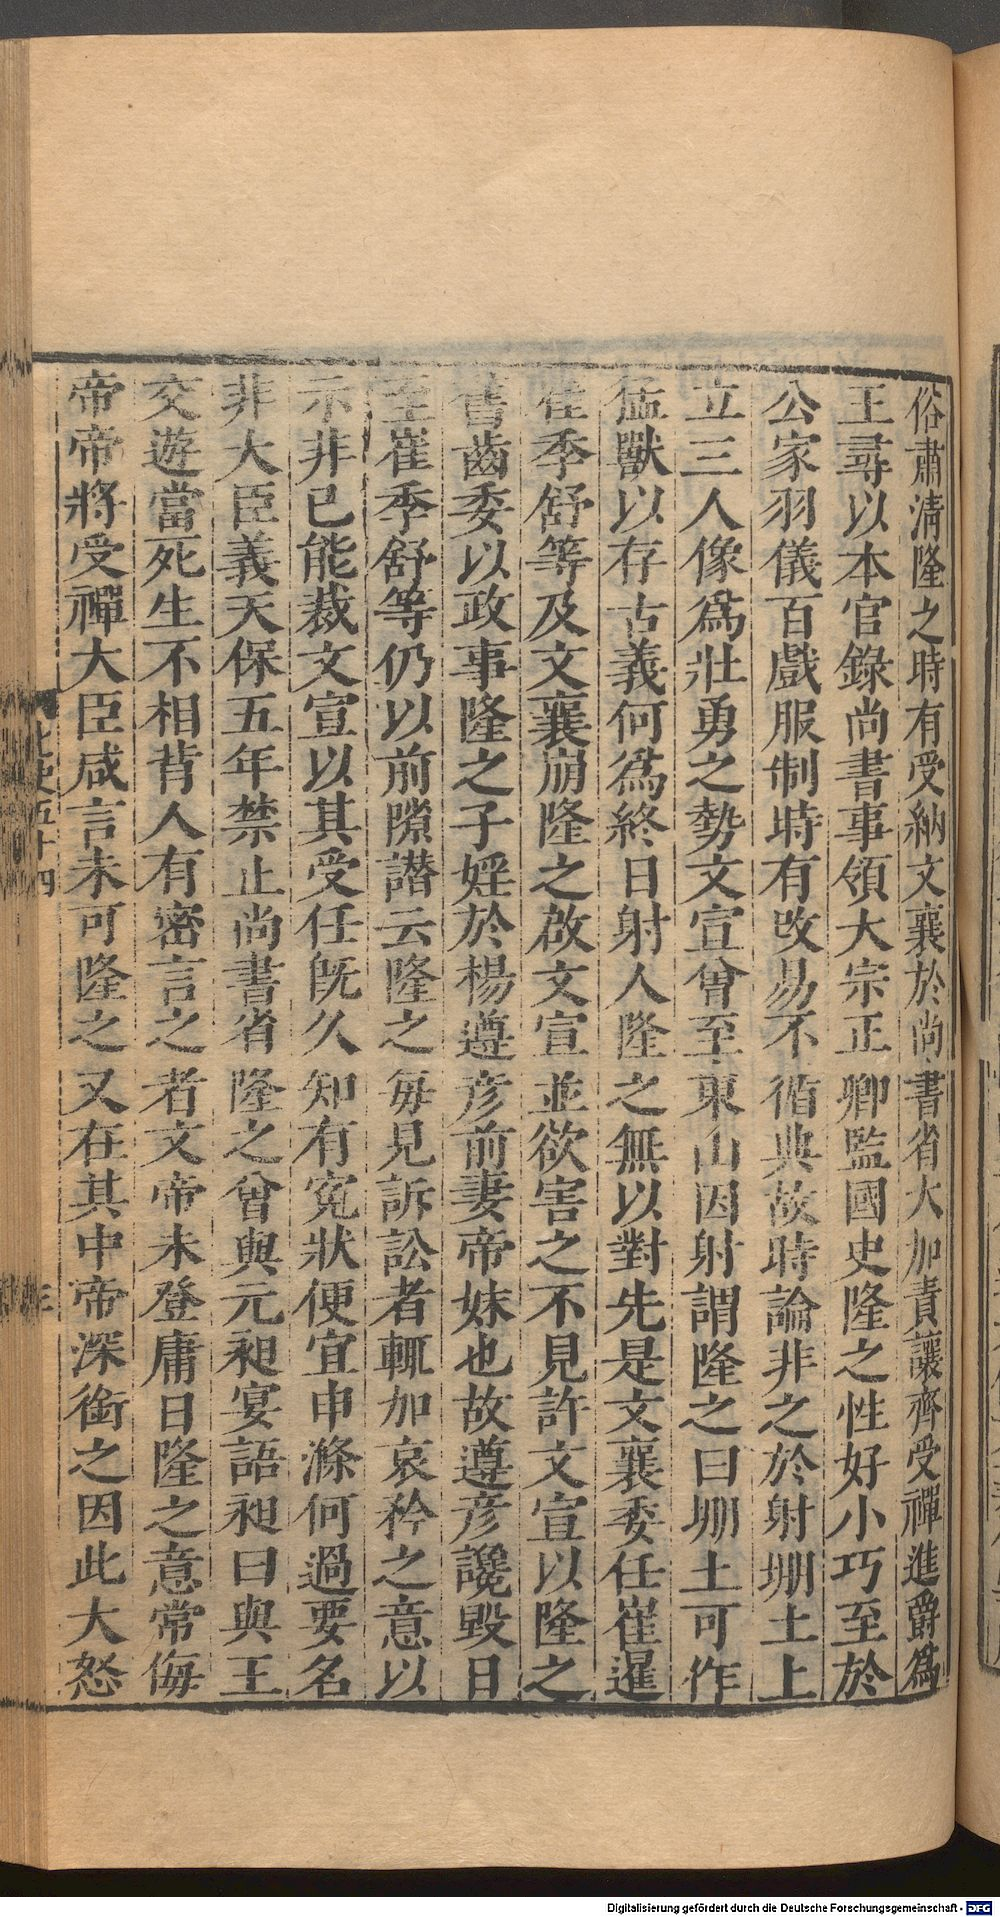 俗肅淸隆之時有受納文襄於尚書省大加責讓齊受禪進爵爲
王尋以本官錄尚書事領大宗正卿監國史隆之性好小巧至於
公家羽儀百戲服制時有改易不循典故時論非之於射堋土上
立三人像爲壯勇之勢文宣曾至東山因射謂隆之曰堋土可作
猛獸以存古義何爲終日射人隆之無以對先是文襄委任崔暹
崔季舒等及文襄崩隆之啟文宣並欲害之不見許文宣以隆之
舊齒委以政事隆之子婬於楊遵彥前妻帝妹也故遵彥讒毀日
至崔季舒等仍以前隙譖云隆之每見訴訟者輒加哀矜之意以
示非已能裁文宣以其受任旣久知有寃狀便宜申滌何過要名
非大臣義天保五年禁止尚書省隆之曾與元昶宴語昶曰與王
交遊當死生不相背人有密言之者文帝未登庸日隆之意常侮
帝帝將受禪大臣咸言未可隆之又在其中帝深銜之因此大怒
北史五十四
三
Digitalisierung gefördert durch die Deutsche Forschungsgemeinschaft - DFG